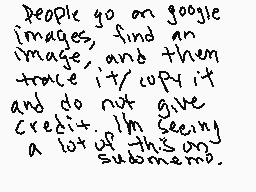 People go on google
images, find an
image, and then
trace it/copy it
and do not give
credit. I'm seeing
a lot of this on
sudomemo.